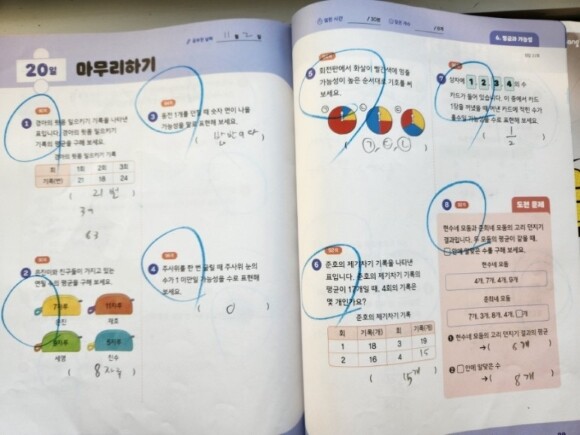 공부한 날짜 11월 2_일
20일 마무리하기
1
경아의 윗몸 일으키기 기록을 나타낸
표입니다. 경아의 윗몸 일으키기
기록의 평균을 구해 보세요.
경아의 윗몸 일으키기 기록
회 1회 2회 3회
기록(번) 21 18 24
( 21번 )
3
63
2
은진이와 친구들이 가지고 있는
연필 수의 평균을 구해 보세요.
7자루
11자루
은진
재호
9자루
5자루
세영
진수
( 8자루 )
3
동전 1개를 던질 때 숫자 면이 나올
가능성을 말로 표현해 보세요.
( 반반이다 )
4
주사위를 한 번 굴릴 때 주사위 눈의
수가 1 미만일 가능성을 수로 표현해
보세요.
( 0 )
걸린 시간 /30분 맞은 개수 /8개
5
회전판에서 화살이 빨간색에 멈출
가능성이 높은 순서대로 기호를 써
보세요.
6
준호의 제기차기 기록을 나타낸
표입니다. 준호의 제기차기 기록의
평균이 17개일 때, 4회의 기록은
몇 개인가요?
준호의 제기차기 기록
회 기록(개) 회 기록(개)
1 18 3 19
2 16 4 15
( 15개 )
6. 평균과 가능성
7
상자에 1 2 3 4 의 수
카드가 들어 있습니다. 이 중에서 카드
1장을 꺼냈을 때 꺼낸 카드에 적힌 수가
홀수일 가능성을 수로 표현해 보세요.
( 1/2 )
8
도전 문제
현수네 모둠과 준희네 모둠의 고리 던지기
결과입니다. 두 모둠의 평균이 같을 때,
□ 안에 알맞은 수를 구해 보세요.
현수네 모둠
4개, 7개, 4개, 9개
준희네 모둠
7개, 3개, 8개, 4개, □개
1 현수네 모둠의 고리 던지기 결과의 평균
→( 6개 )
2 □ 안에 알맞은 수
→( 8개 )